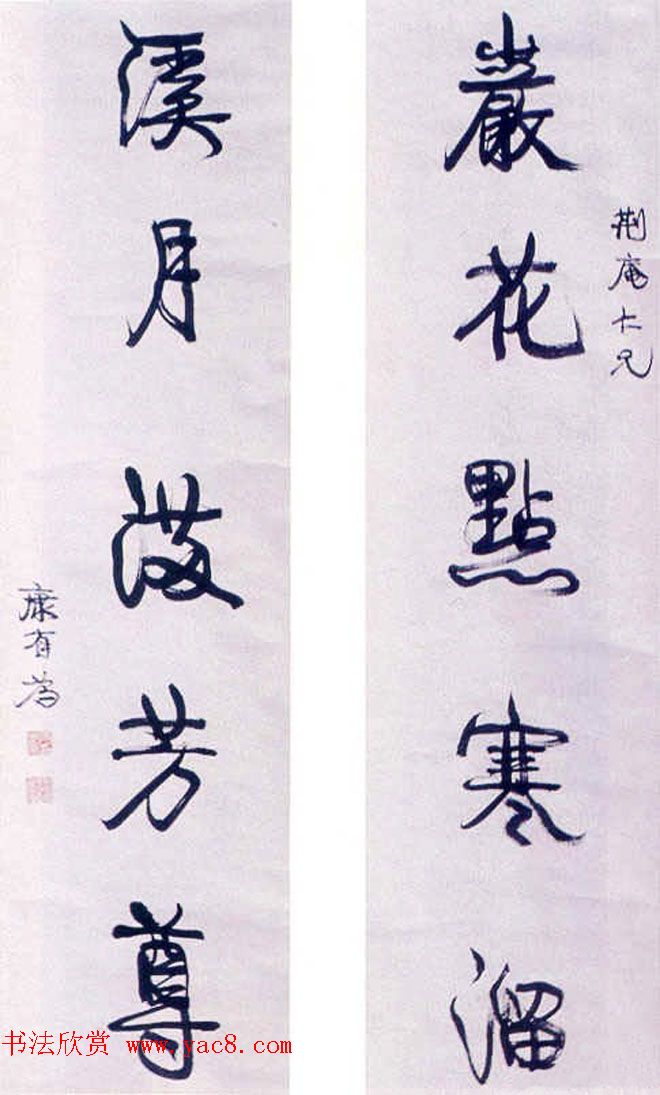 荊庵仁兄
巖花點寒溜
溪月芳尊
康有為
书法欣赏 www.yac8.com